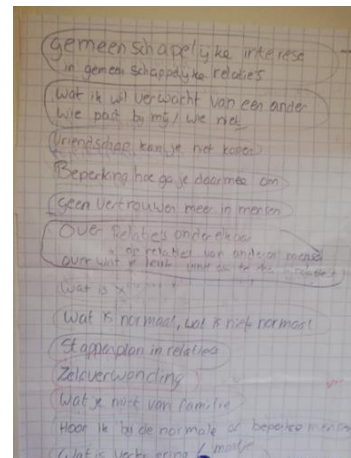 gemeenschapelijke interese
in gemeenschappelijke relaties
wat ik wil verwacht van een ander
wie past bij mij / wie niet
Vriendschap kan je niet kopen
Beperking hoe ga je daarmee om
geen vertrouwen meer in mensen
Over Relaties onder elkaar
op relaties van anderen mensen
over wat je
Wat is
Wat is normaal, wat is niet normaal
Stappenplan in relaties
Zelfverwonding
Wat je mist van familie
Hoor ik bij de normale of beperkte mensen
Wat is